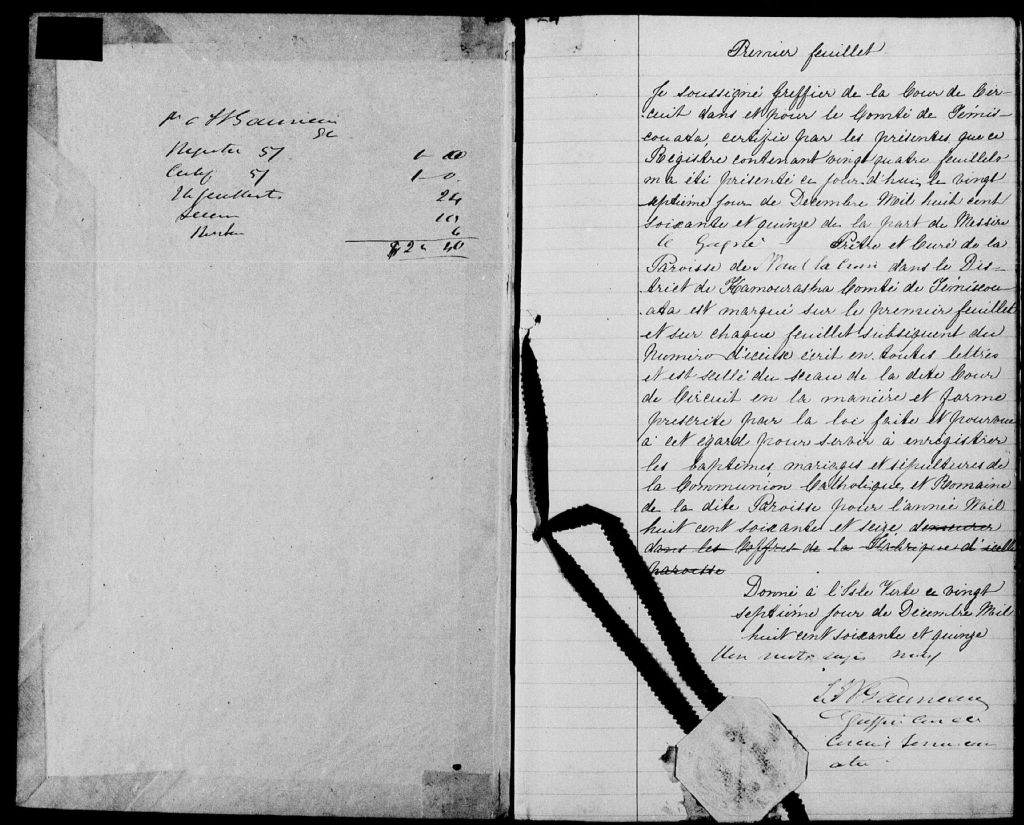 Register 51 1-00
Certif 51 1-0
24 feuillets 24
10
6
$2 40
Premier feuillet
Je soussigné Greffier de la Cour de Cir-
cuit dans et pour le Comté de Témis-
couata, certifie par les présentes que ce
Régistre contenant vingt quatre feuillets
m'a été présenté ce jour d'hui, le vingt
septième jour de Decembre Mil huit cent
soixante et quinze de la part de Messire
Gagné Prêtre et Curé de la
Paroisse de St Paul la Croix dans le Dis-
trict de Kamouraska Comté de Témiscou-
ata est marqué sur le premier feuillet
et sur chaque feuillet subséquent du
Numéro d'iceux écrit en toutes lettres
et est scellé du sceau de la dite Cour
de Circuit en la manière et forme
prescrite par la loi faite et pourvue
à cet égard pour servir à enregistrer
les baptêmes, mariages et sépultures de
la Communion Catholique et Romaine
de la dite Paroisse pour l'année Mil
huit cent soixante et seize demeurer
dans les Coffres de la Fabrique d'icelle
Paroisse
Donné à l'Isle Verte ce vingt
septième jour de Decembre Mil
huit cent soixante et quinze
mots rayés nuls
Gauvreau
Greffier Cour de
Circuit Temiscou
ata